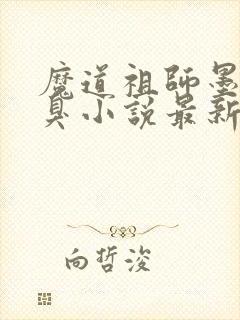 魔道祖師墨
臭小説最新
向哲浚